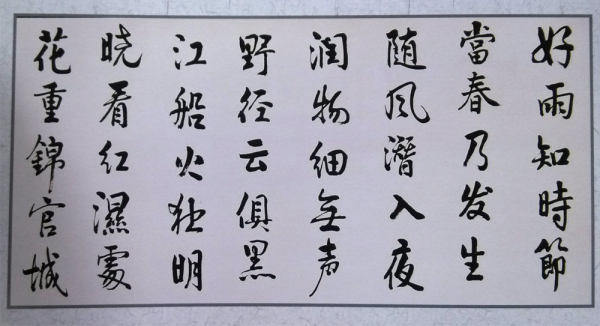 好雨知時節
當春乃发生
随风潛入夜
润物细无声
野径云俱黑
江船火独明
晓看红濕處
花重錦官城